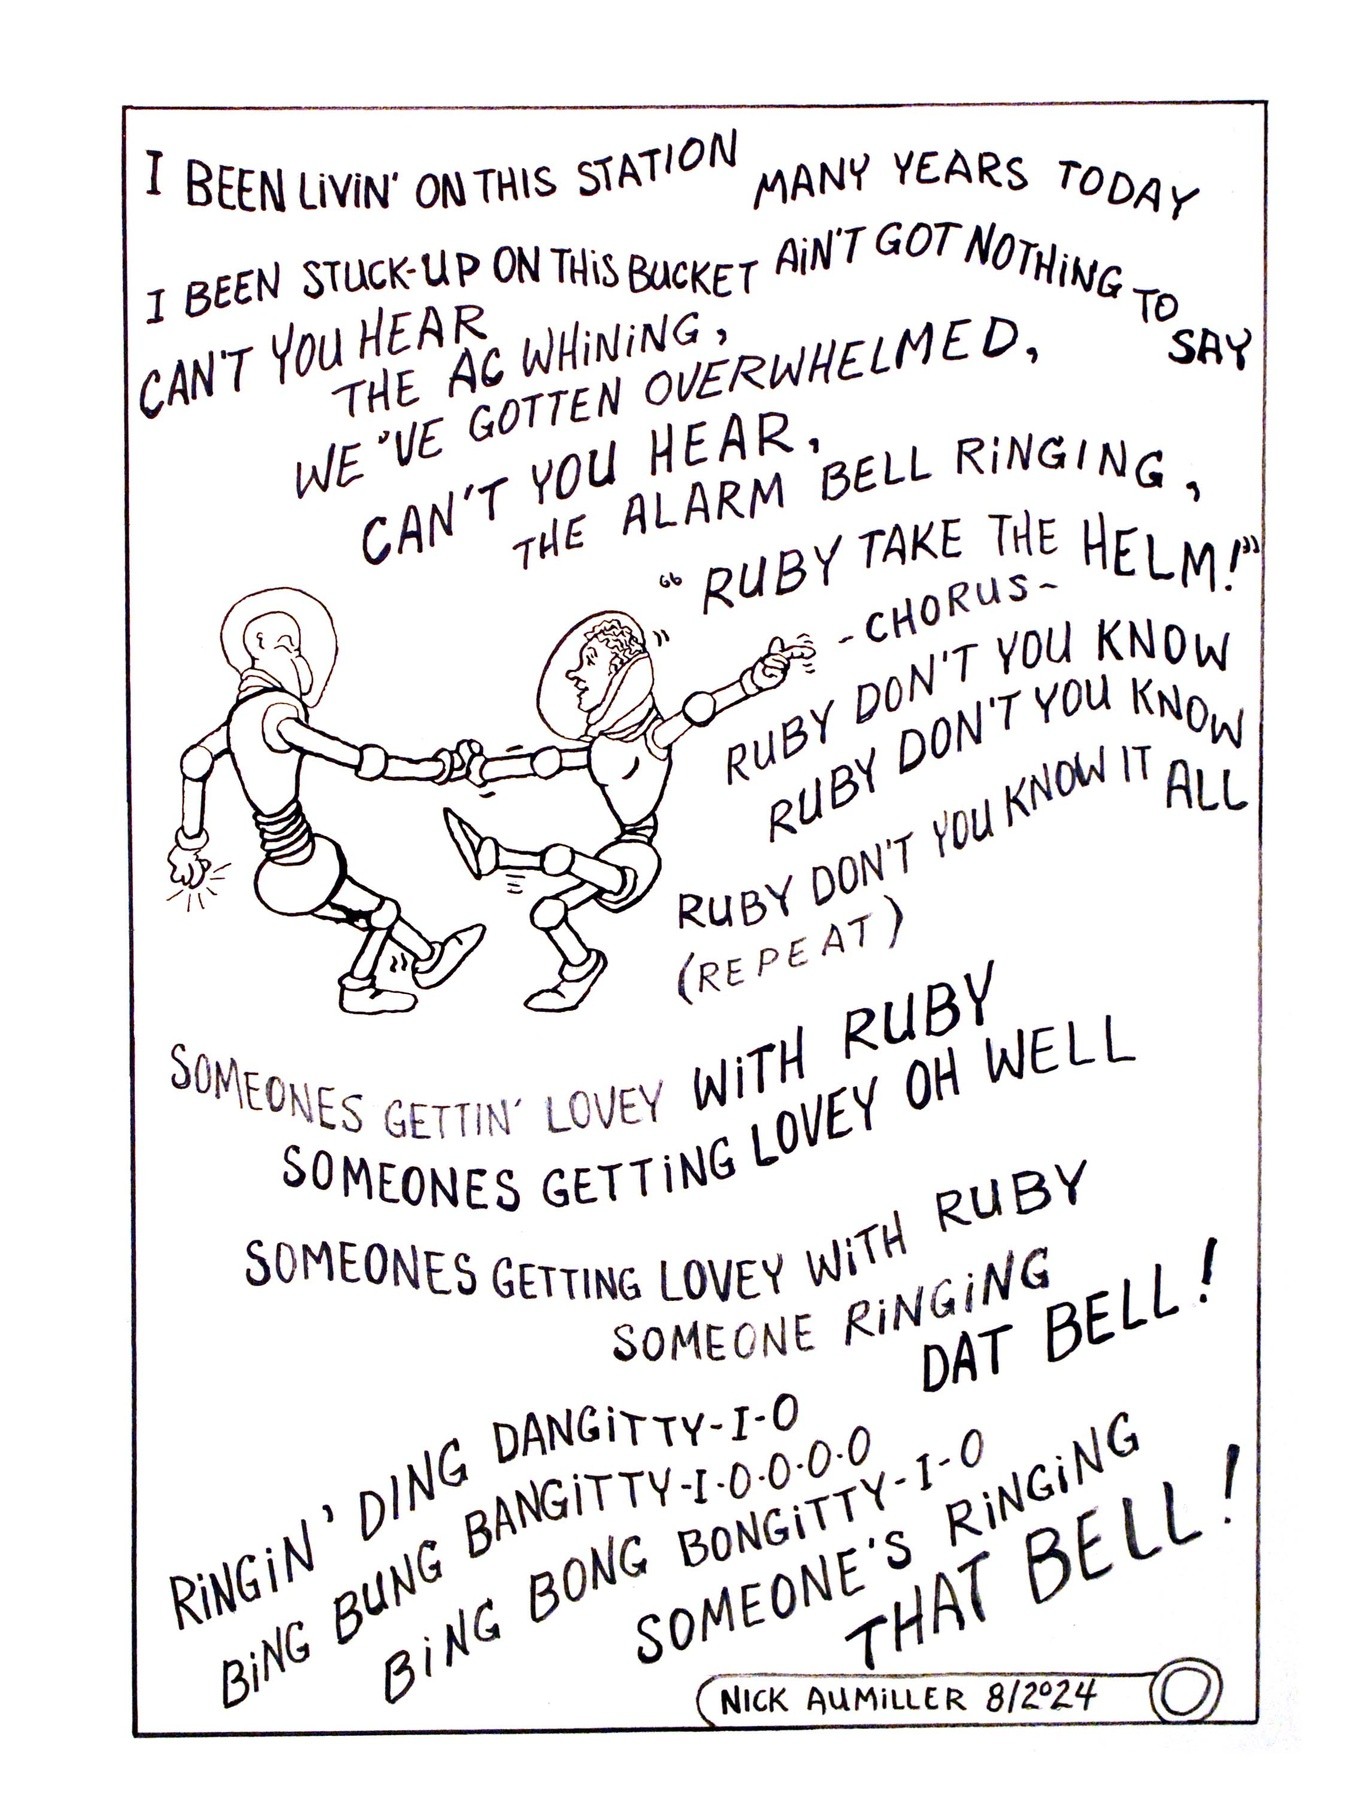 I BEEN LIVIN' ON THIS STATION MANY YEARS TODAY
I BEEN STUCK-UP ON THIS BUCKET AIN'T GOT NOTHING TO SAY
CAN'T YOU HEAR
THE AC WHINING,
WE'VE GOTTEN OVERWHELMED,
CAN'T YOU HEAR,
THE ALARM BELL RINGING,
"RUBY TAKE THE HELM!"
-CHORUS-
RUBY DON'T YOU KNOW
RUBY DON'T YOU KNOW
RUBY DON'T YOU KNOW IT ALL
(REPEAT)
SOMEONES GETTIN' LOVEY WITH RUBY
SOMEONES GETTING LOVEY OH WELL
SOMEONES GETTING LOVEY WITH RUBY
SOMEONE RINGING
DAT BELL!
RINGIN' DING DANGITTY-I-O
BING BUNG BANGITTY-I-O-O-O-O
BING BONG BONGITTY-I-O
SOMEONE'S RINGING
THAT BELL!
NICK AUMILLER 8/2024